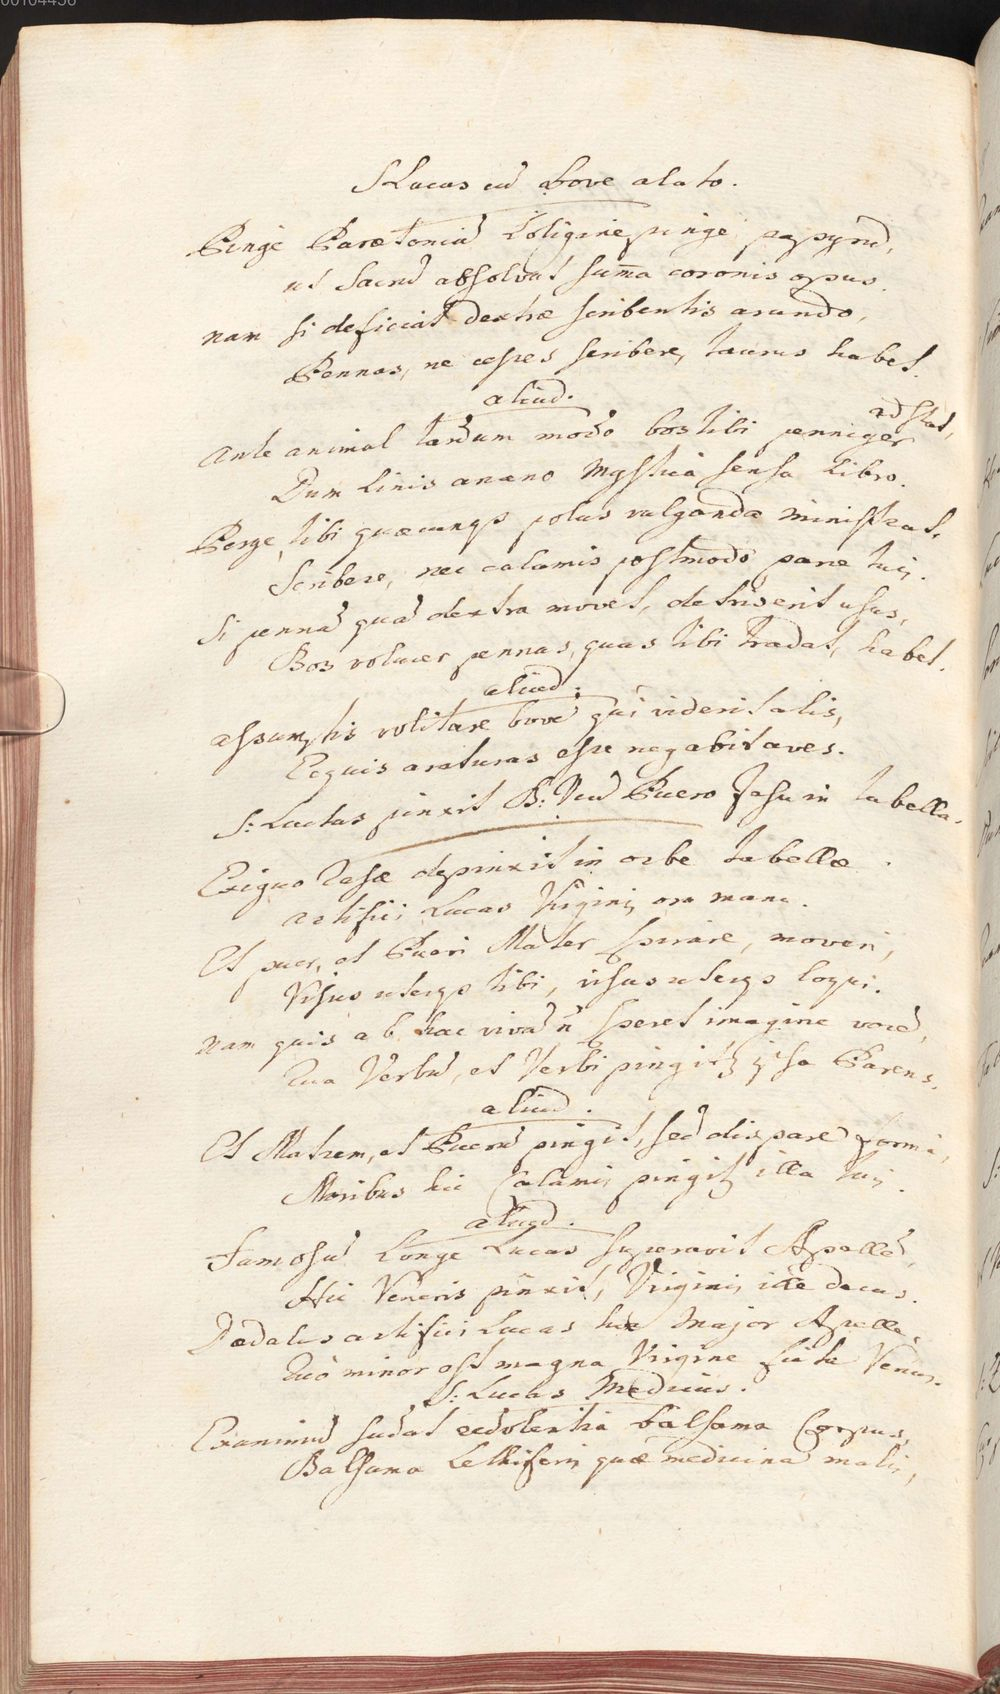 00104436
S Lucas cū bove alato.
Pinge Parætoniā loligine pinge papyrū,
ut Sacrū absolvat sum̄a coronis opus.
nam si deficiat dextræ scribentis arundo,
Pennas, ne cesses scribere, taurus habet.
aliud.
Ante animal tardum modo bos tibi penniger adstat,
Dum linis arcano Mystica sensa libro.
Perge, tibi quæcunqȝ polus vulganda ministrat,
Scribere, nec calamis postmodo parce tuis.
Si pennā quā dextra movet, detriverit usus,
Bos volucer pennas, quas tibi tradat, habet.
aliud.
assumptis volitare bovē qui viderit alis,
Ecquis araturas esse negabit aves.
S: Lucas pinxit B: V cū Puero Jesu in tabella.
Exiguo rasæ depinxit in orbe tabellæ
artifici Lucas Virginis ora manu.
Et puer, et Pueri Mater spirare, moveri,
Visus uterqȝ tibi, visus uterqȝ loqui.
nam quis ab hac vivā n̄ speret imagine vocē,
Qua Verbū, et Verbi pingitȝ ipsa Parens.
aliud.
Et Matrem, et Puerū pingit, sed dispare formā,
Moribus hic Calamis pingitȝ illa tuis.
aliud.
Famosū longe Lucas superavit Apellē,
Hic Veneris pinxit, Virginis ille decus.
Dædalus artifici Lucas hic Major Apelle,
Quò minor est magna Virgine ficta Venus.
S: Lucas Medicus.
Exanimū sudat redolentia balsama Corpus,
Balsama Lethiferis quæ medicina malis,